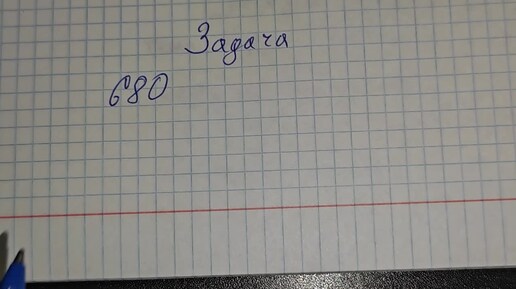 Задача
680